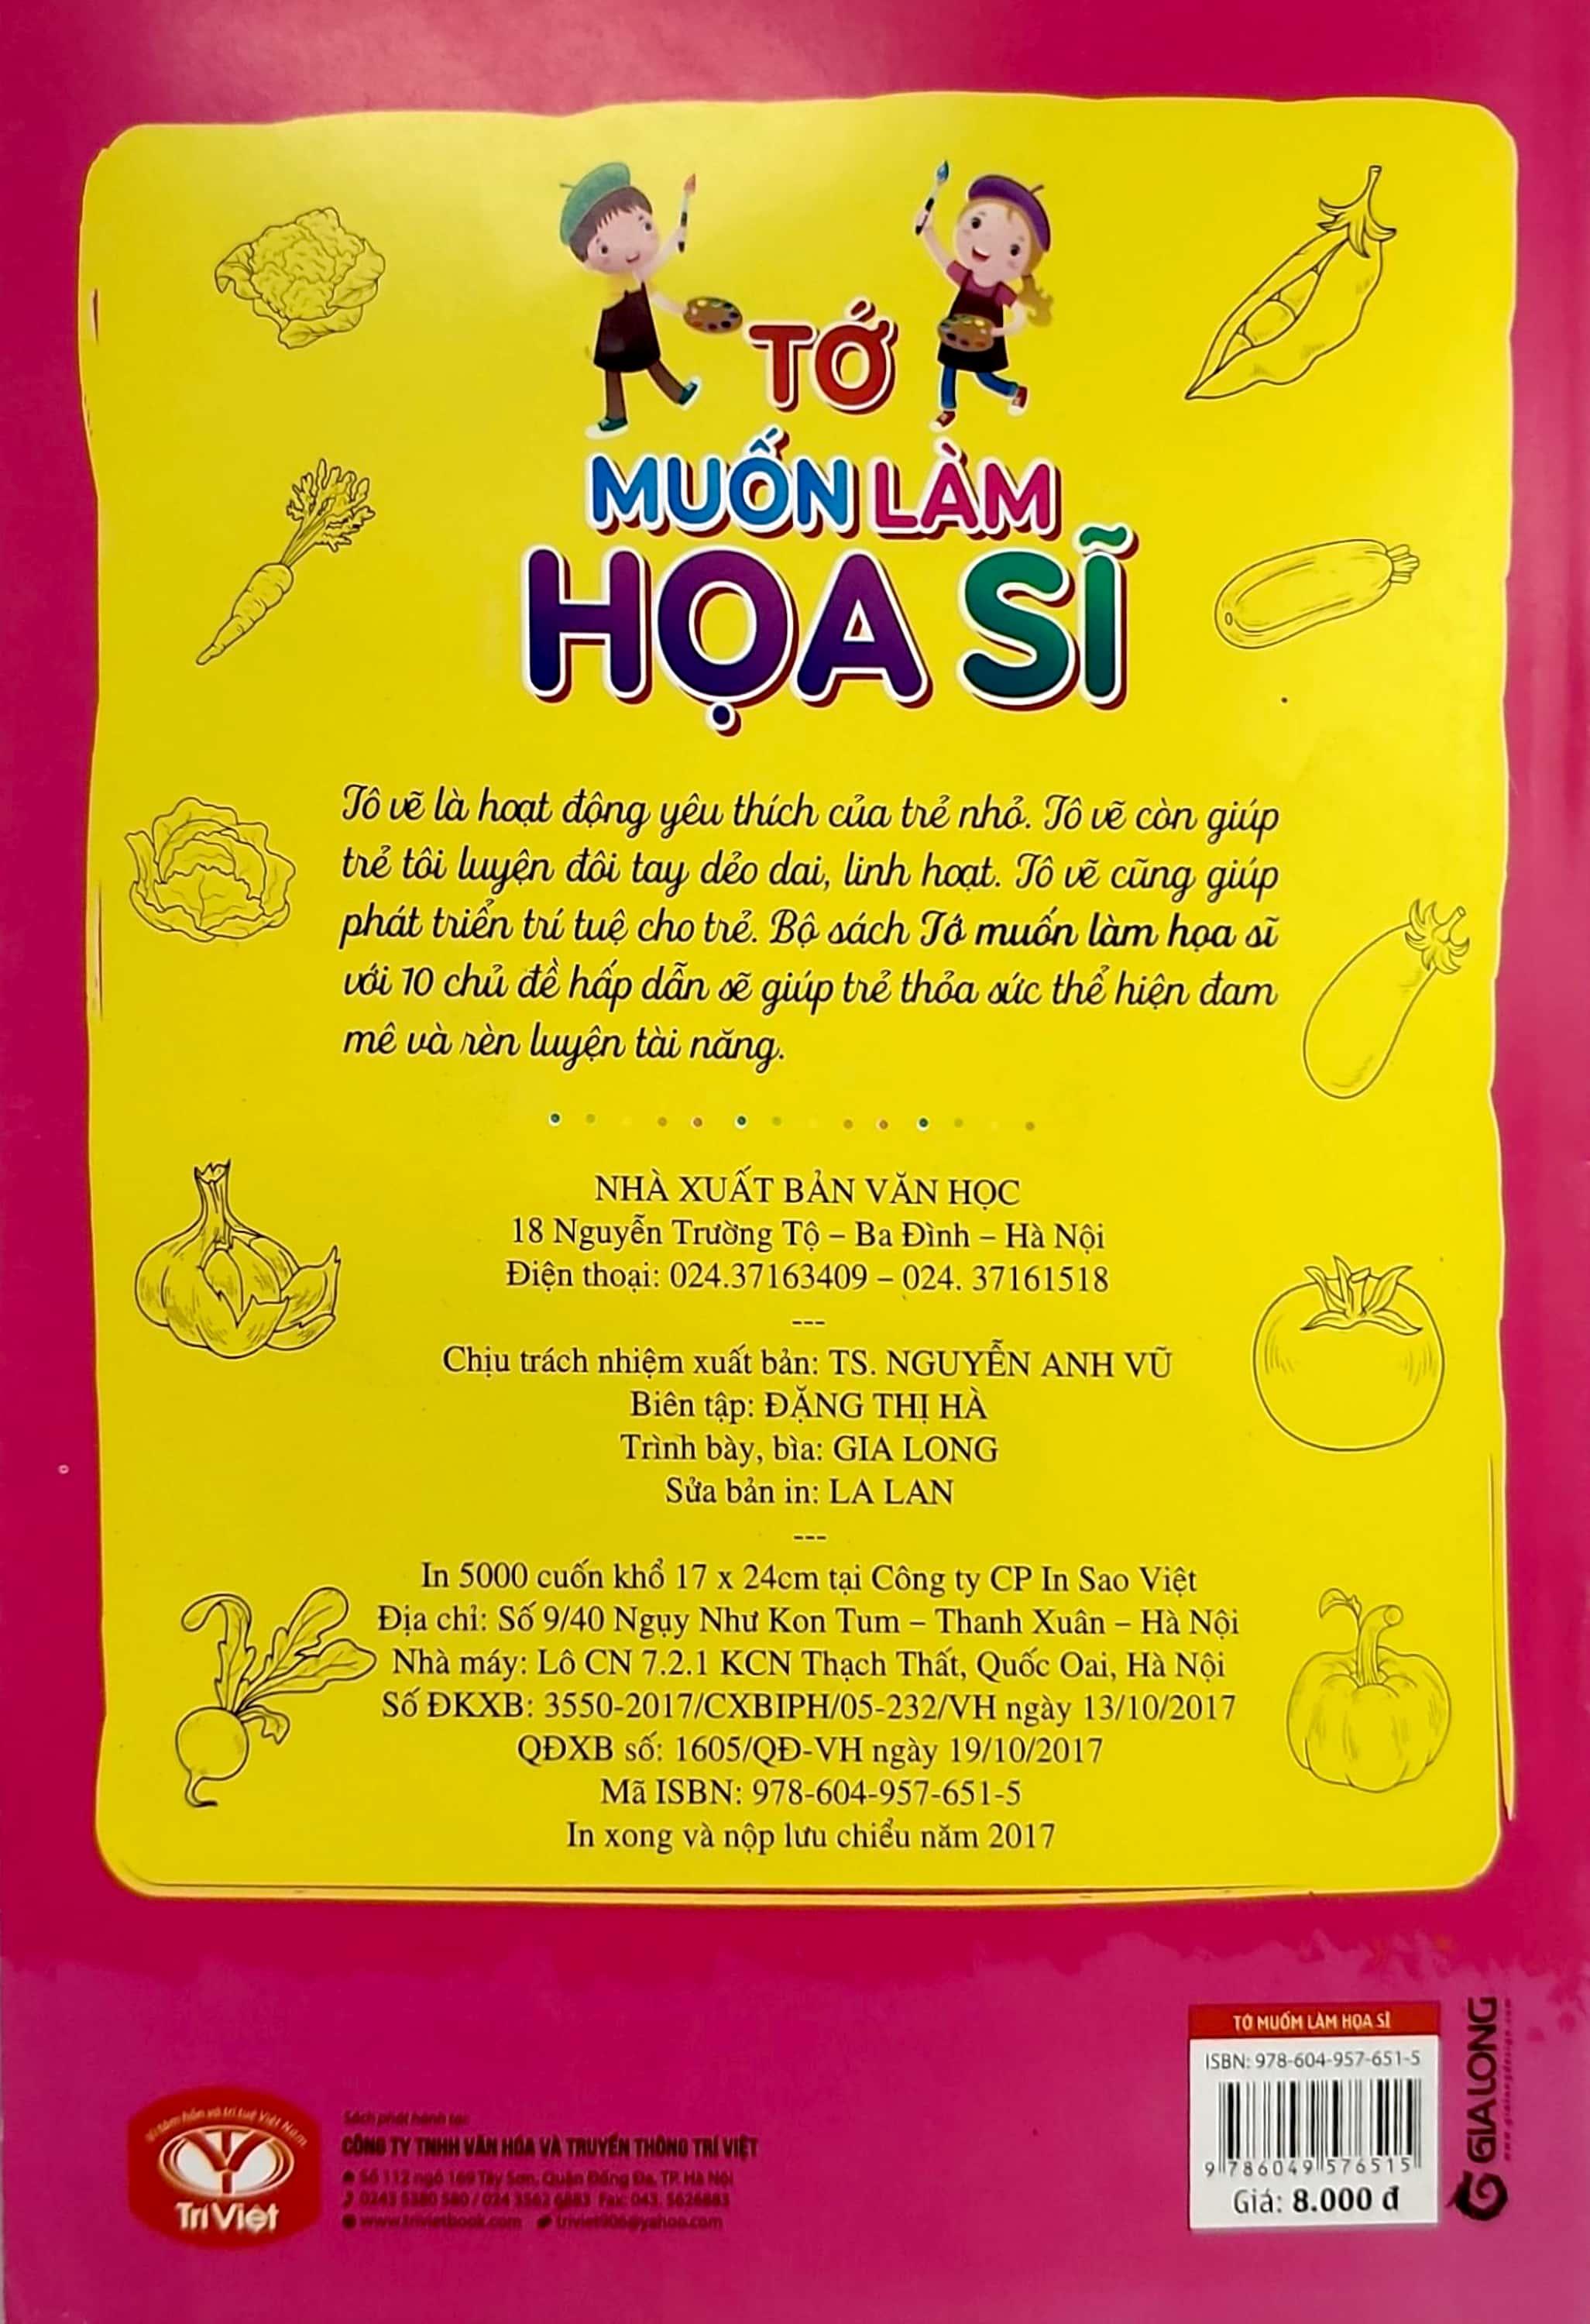 TỚ
MUỐN LÀM
HỌA SĨ
Tô vẽ là hoạt động yêu thích của trẻ nhỏ. Tô vẽ còn giúp
trẻ tôi luyện đôi tay dẻo dai, linh hoạt. Tô vẽ cũng giúp
phát triển trí tuệ cho trẻ. Bộ sách Tớ muốn làm họa sĩ
với 10 chủ đề hấp dẫn sẽ giúp trẻ thỏa sức thể hiện đam
mê và rèn luyện tài năng.
NHÀ XUẤT BẢN VĂN HỌC
18 Nguyễn Trường Tộ – Ba Đình – Hà Nội
Điện thoại: 024.37163409 – 024. 37161518
---
Chịu trách nhiệm xuất bản: TS. NGUYỄN ANH VŨ
Biên tập: ĐẶNG THỊ HÀ
Trình bày, bìa: GIA LONG
Sửa bản in: LA LAN
---
In 5000 cuốn khổ 17 x 24cm tại Công ty CP In Sao Việt
Địa chỉ: Số 9/40 Ngụy Như Kon Tum – Thanh Xuân – Hà Nội
Nhà máy: Lô CN 7.2.1 KCN Thạch Thất, Quốc Oai, Hà Nội
Số ĐKXB: 3550-2017/CXBIPH/05-232/VH ngày 13/10/2017
QĐXB số: 1605/QĐ-VH ngày 19/10/2017
Mã ISBN: 978-604-957-651-5
In xong và nộp lưu chiểu năm 2017
Vì tâm hồn và trí tuệ Việt Nam
Trí Việt
Sách phát hành tại:
CÔNG TY TNHH VĂN HÓA VÀ TRUYỀN THÔNG TRÍ VIỆT
Số 112 ngõ 169 Tây Sơn, Quận Đống Đa, TP. Hà Nội
0243 5380 580 / 024 3562 6883 Fax: 043. 5626883
www.trivietbook.com triviet906@yahoo.com
TỚ MUỐM LÀM HỌA SĨ
ISBN: 978-604-957-651-5
9 786049 576515
Giá: 8.000 đ
GIALONG